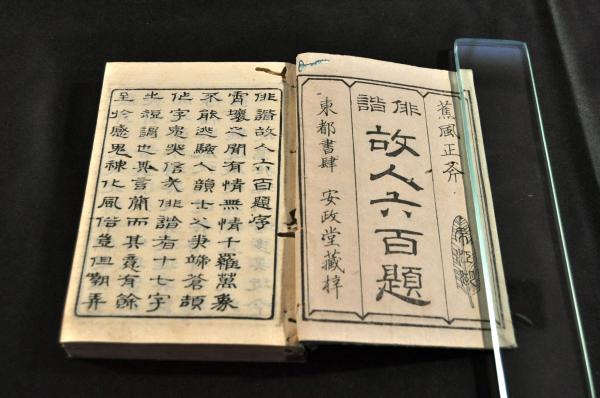 蕉風正斧
俳諧
故人六百題
東都書肆 安政堂藏梓
俳諧故人六百題序
霄壤之間有情無情千羅萬象
不能逃騷人韻士之 蒼頡
作字鬼哭信哉俳諧者十七字
也短調也其言簡而其意有餘
至於感鬼神化風俗豈但嘲弄